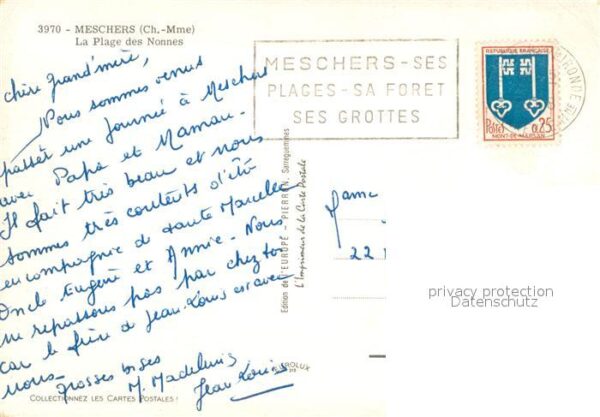 3970 - MESCHERS (Ch.-Mme)
La Plage des Nonnes
chère grand'mère,
Nous sommes venus
passer une journée à Meschers
avec Papa et Maman.
Il fait très beau et nous
sommes très contents d'être
en compagnie de tante Marcelle
Oncle Eugène et Annie. Nous
ne repassons pas par chez toi
car le frère de Jean Louis est avec
nous.
grosses bises
M. Madeleine
Jean Louis
COLLECTIONNEZ LES CARTES POSTALES !
Edition de l'EUROPE - PIERRON, Sarreguemines
L'Imprimeur de la Carte Postale
MESCHERS - SES
PLAGES - SA FORET
SES GROTTES
REPUBLIQUE FRANÇAISE
Postes 0,25
MONT-DE-MARSAN
GIRONDE
Mame
22
privacy protection
Datenschutz